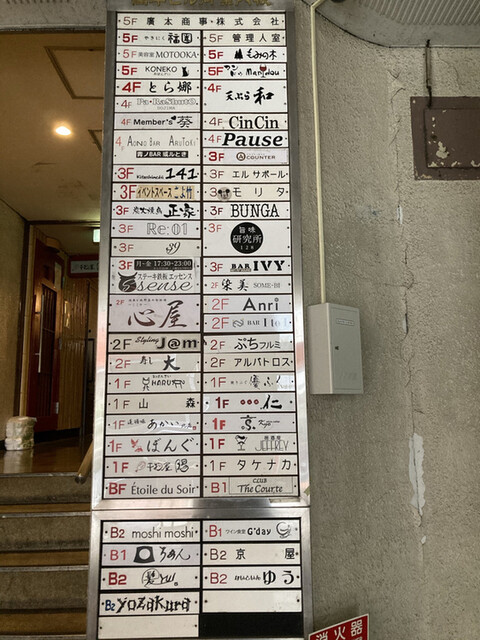 5F 廣太商事・株式会社
5F やきにく 福園
5F 管理人室
5F 美容室 MOTOOKA
5F もみの木
5F KONEKO
5F Manjdou
4F とら娜
4F 天ぷら 和
4F Pa・RaShutO.
4F Member's 葵
4F CinCin
4F AONO BAR ARUTOKI
青ノBAR 或ルとき
4F Pause
3F COUNTER
3F Kitashinchi 141
3F エルサポール
3F イベントスペース こよサ
3F モリタ
3F 炭火焼鳥 正家
3F BUNGA
3F Re:01
3F 旨味研究所 128
3F
3F 月-金 17:30-23:00
ステーキ鉄板 エッセンス
Ssense
3F BAR IVY
2F 栄美 SOME・田
2F 心屋
2F Anri
2F BAR
2F Styling J@m
2F ぷちフルミ
2F 寿し 大
2F アルバトロス
1F HARU
1F ふく
1F 山森
1F 仁
1F あかい
1F 京
1F ぽんぐ
1F 居酒屋 JEFFREY
1F
1F タケナカ
BF Étoile du Soir
B1 CLUB The Courte
B2 moshi moshi
B1 ワイン食堂 G'day
B1 らあん
B2 京屋
B2 髪
B2 けいといん ゆう
B2 yozakura
消火器